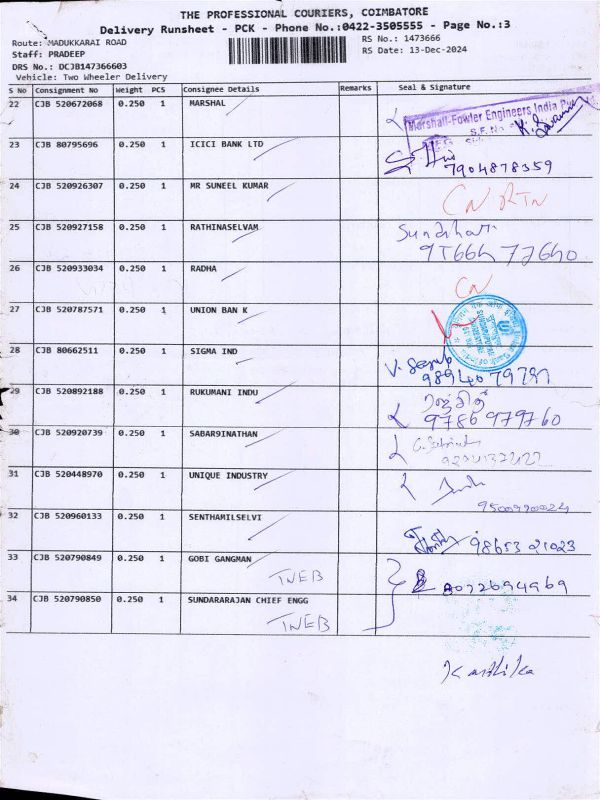 THE PROFESSIONAL COURIERS, COIMBATORE
Delivery Runsheet - PCK - Phone No.:0422-3505555 - Page No.:3
Route: MADUKKARAI ROAD
RS No.: 1473666
Staff: PRADEEP
RS Date: 13-Dec-2024
DRS No.: DCJB147366603
Vehicle: Two Wheeler Delivery
S No Consignment No Weight PCS Consignee Details Remarks Seal & Signature
22 CJB 520672068 0.250 1 MARSHAL
Marshall-Fowler Engineers India
S.F. No
23 CJB 80795696 0.250 1 ICICI BANK LTD
7904878359
24 CJB 520926307 0.250 1 MR SUNEEL KUMAR
CN RTN
25 CJB 520927158 0.250 1 RATHINASELVAM
26 CJB 520933034 0.250 1 RADHA
CN
27 CJB 520787571 0.250 1 UNION BAN K
28 CJB 80662511 0.250 1 SIGMA IND
29 CJB 520892188 0.250 1 RUKUMANI INDU
9786979760
30 CJB 520920739 0.250 1 SABAR9INATHAN
31 CJB 520448970 0.250 1 UNIQUE INDUSTRY
32 CJB 520960133 0.250 1 SENTHAMILSELVI
98653 21023
33 CJB 520790849 0.250 1 GOBI GANGMAN
TNEB
34 CJB 520790850 0.250 1 SUNDARARAJAN CHIEF ENGG
TNEB
Karthika